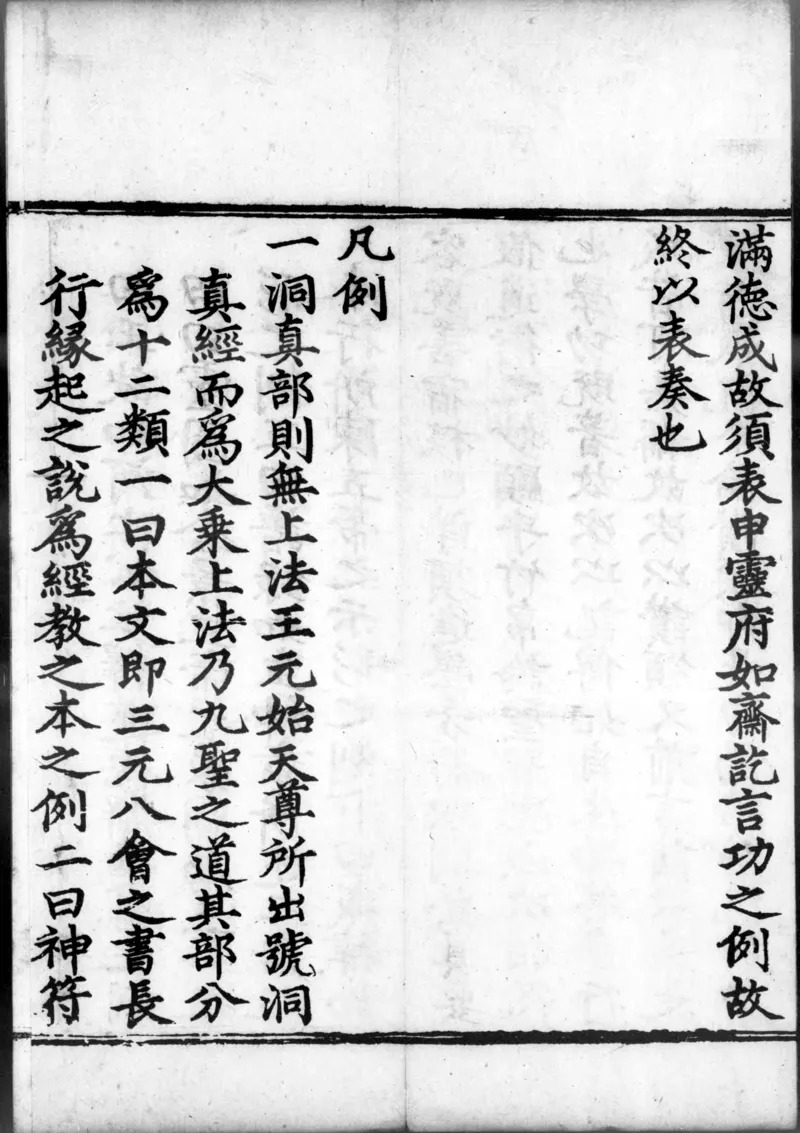 滿德成故須表申靈府如齋訖言功之例故
終以表奏也
凡例
一洞真部則無上法王元始天尊所出號洞
真經而爲大乘上法乃九聖之道其部分
爲十二類一曰本文即三元八會之書長
行縁起之說爲經教之本之例二曰神符